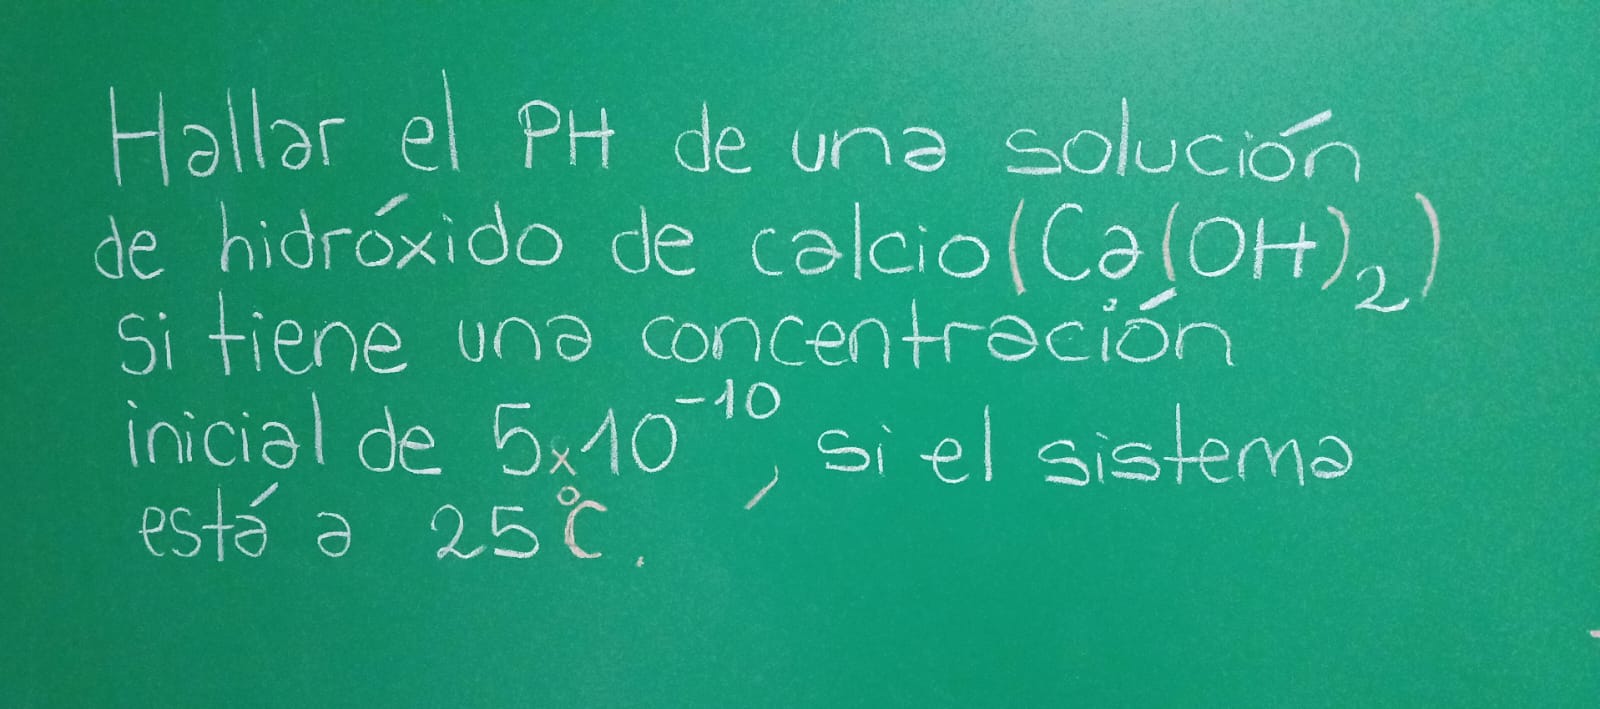 Hallar el PH de una solución
de hidróxido de calcio (Ca(OH)₂)
si tiene una concentración
inicial de 5x10⁻¹⁰, si el sistema
está a 25°C.